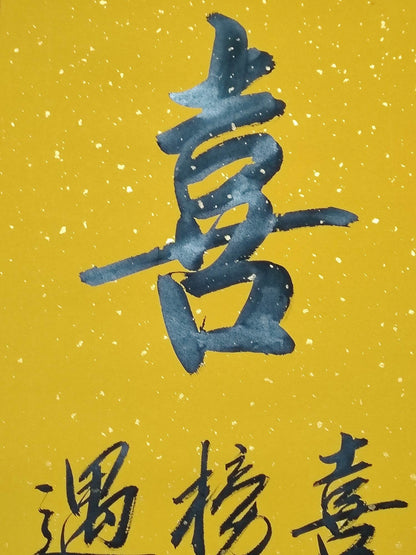 喜
喜榜遇